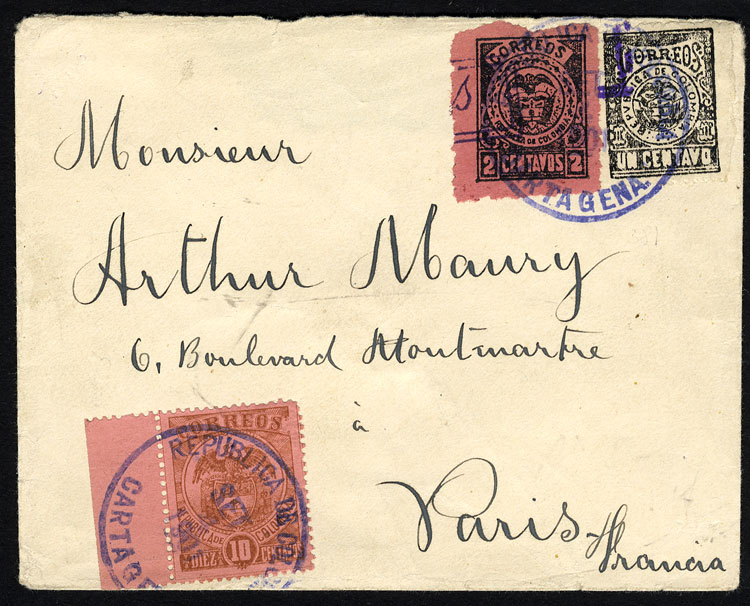 CORREOS
REPUBLICA DE COLOMBIA
2 CENTAVOS 2
CORREOS
REPUBLICA DE COLOMBIA
UN CENTAVO
CARTAGENA
Monsieur
Arthur Maury
6, Boulevard Montmartre
à
Paris
Francia
CORREOS
REPUBLICA DE COLOMBIA
DIEZ 10
REPUBLICA DE
SEP
CARTAGE